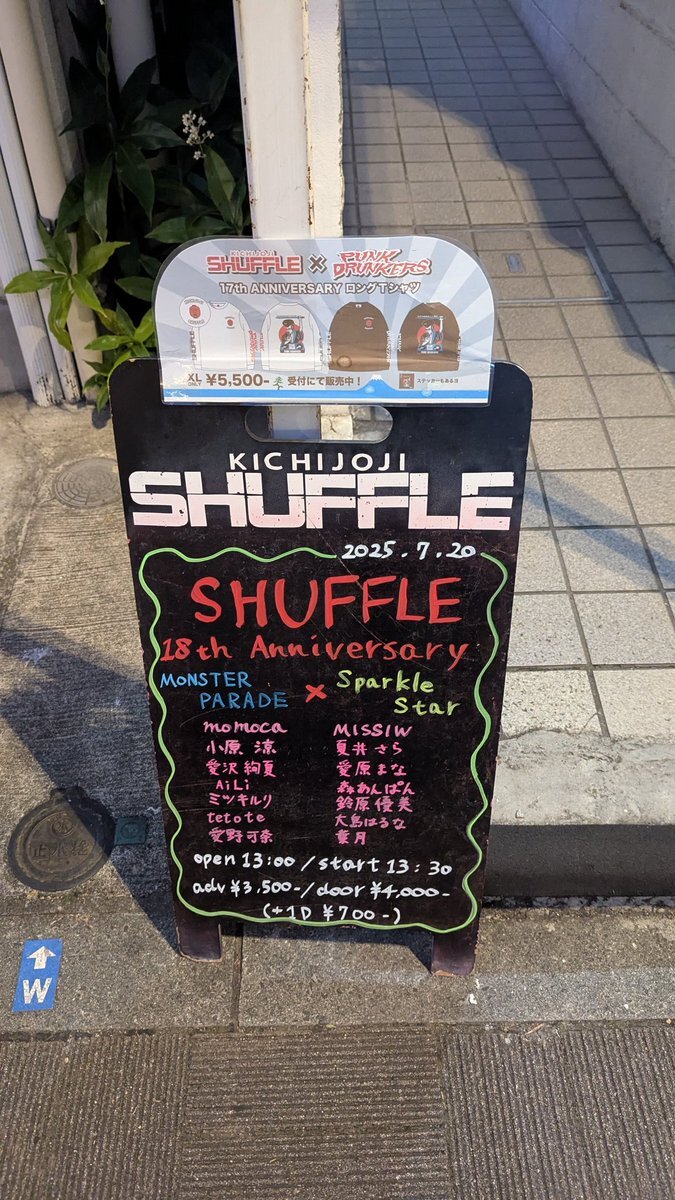 KICHIJOJI
SHUFFLE × PUNK DRUNKERS
17th ANNIVERSARY ロングTシャツ
XL ONLY ¥5,500- 受付にて販売中！ ステッカーもあるヨ
KICHIJOJI
SHUFFLE
2025.7.20
SHUFFLE
18th Anniversary
MONSTER PARADE × Sparkle Star
momoca MISSIW
小原 涼 夏井さら
愛沢絢夏 愛原まな
AiLi 森あんぱん
ミツキルリ 鈴原優美
tetote 大島はるな
愛野可奈 葉月
open 13:00 / start 13:30
adv ¥3,500-/door ¥4,000-
(+1D ¥700-)
W